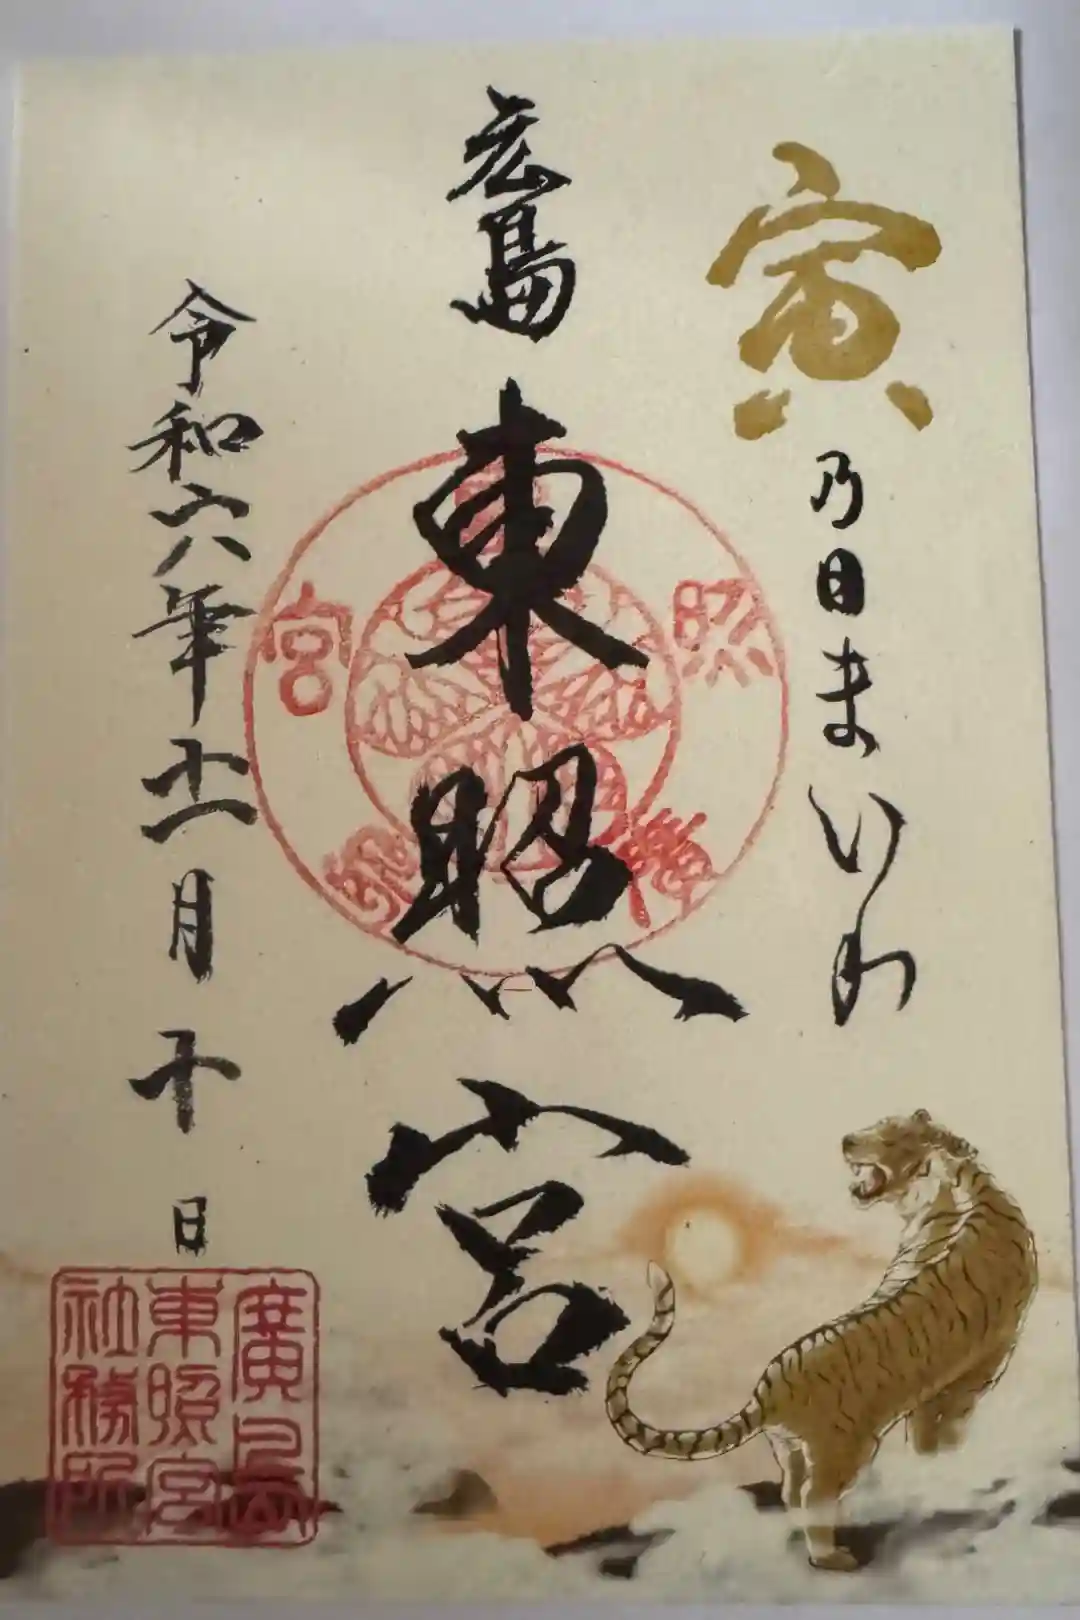 寅乃日まいり
広島東照宮
令和六年十一月十日
東照宮御璽
廣島
東照宮
社務所